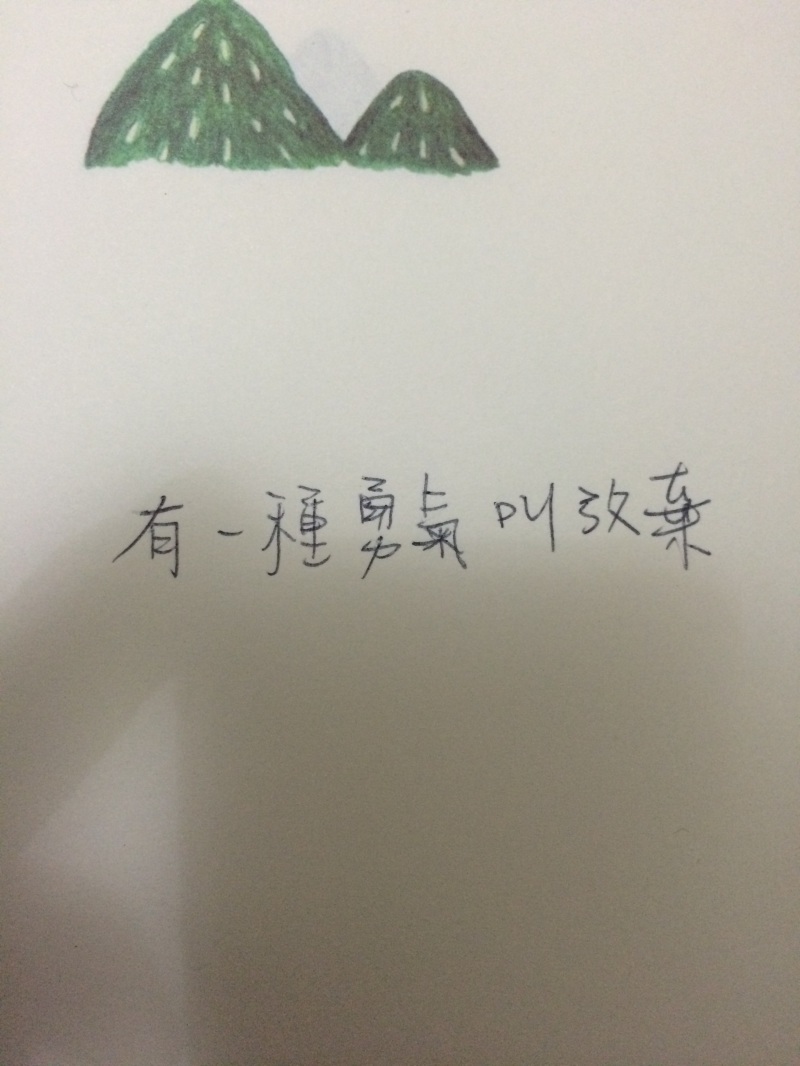 有一種勇氣叫放棄